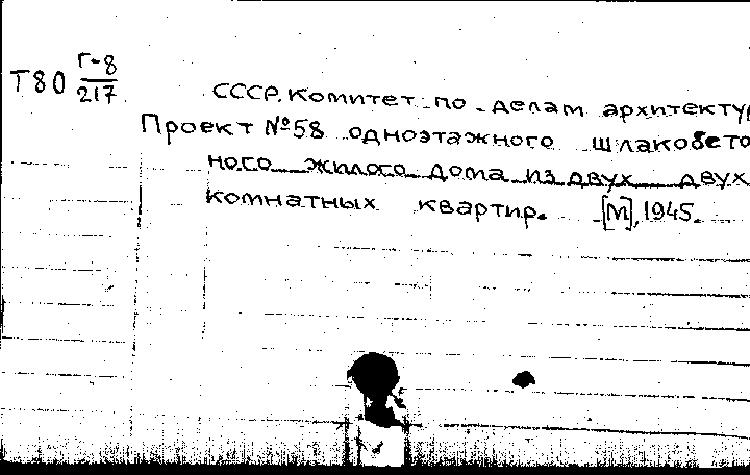 Т80 Г-8/217
СССР. Комитет по делам архитектур
Проект №58 одноэтажного шлакобето
ного жилого дома из двух двух
комнатных квартир. [М], 1945.